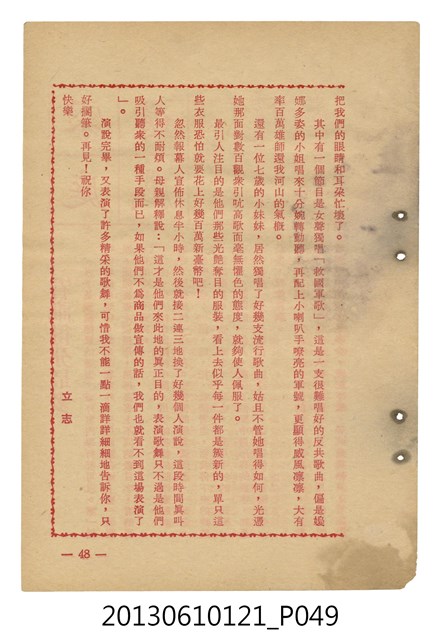 把我們的眼睛和耳朵忙壞了。
其中有一個節目是女聲獨唱「救國軍歌」，這是一支很難唱好的反共歌曲，偏是嬝
娜多姿的小姐唱來十分婉轉動聽，再配上小喇叭手嘹亮的軍號，更顯得威風凛凛，大有
率百萬雄師還我河山的氣概。
還有一位七歲的小妹妹，居然獨唱了好幾支流行歌曲，姑且不管她唱得如何，光憑
她那面對數百觀衆引吭高歌而毫無懼色的態度，就夠使人佩服了。
最引人注目的是他們那些光艷奪目的服裝，看上去似乎每一件都是簇新的，單只這
些衣服恐怕就要花上好幾百萬新臺幣吧！
忽然報幕人宣佈休息半小時，然後就接二連三地換了好幾個人演說，這段時間眞叫
人等得不耐煩。母親解釋說：「這才是他們來此地的眞正目的，表演歌舞只不過是他們
吸引聽衆的一種手段而已，如果他們不爲商品做宣傳的話，我們也就看不到這場表演了
」。
演說完畢，又表演了許多精采的歌舞，可惜我不能一點一滴詳詳細細地告訴你，只
好擱筆。再見！祝你
快樂
立志
— 48 —
20130610121_P049